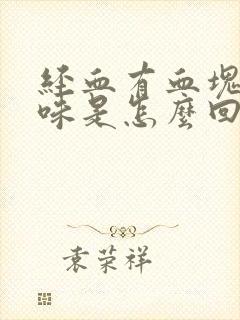 經血有血塊
味是怎麼回
袁荣祥